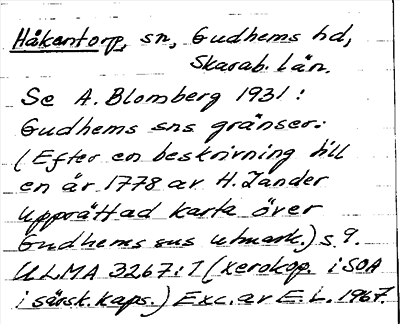 Håkantorp, sn, Gudhems hd,
Skarab. län.
Se A. Blomberg 1931:
Gudhems sns gränser.
(Efter en beskrivning till
en år 1778 av H. Zander
upprättad karta över
Gudhems sns utmark.) s. 9.
ULMA 3267:1 (xerokop. i SOA
i särsk. kaps.) Exc. av E. L. 1967.